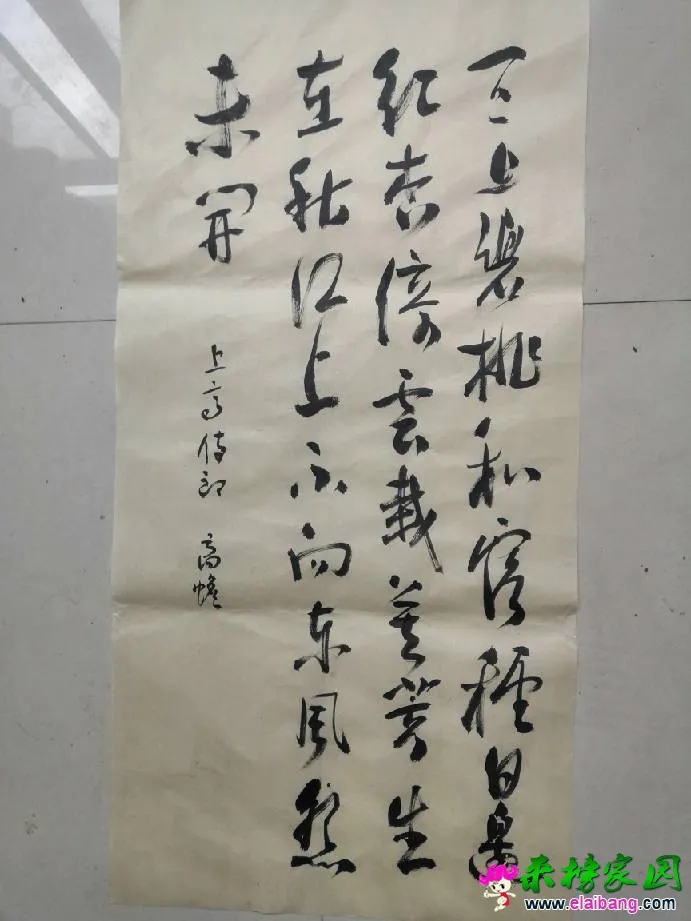 天上碧桃和露種日邊
红杏倚雲栽芙蓉生
在秋江上不向东風怨
未開
上高侍郎 高蟾
来榜家园
www.elaibang.com